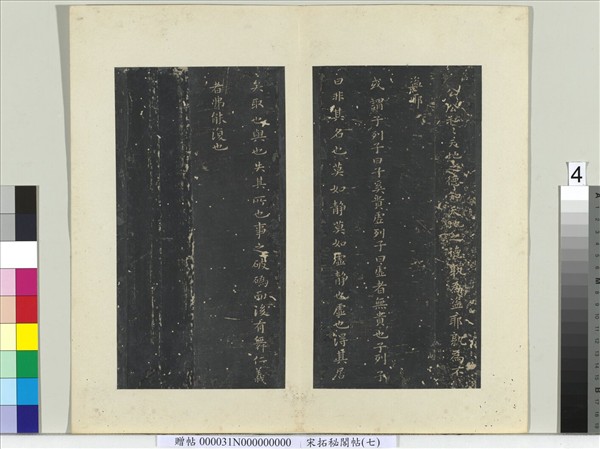 公公私々天地之德知天地之德孰為盜耶孰為不
盜耶
或謂子列子曰子奚貴虛列子曰虛者無貴也子列子
曰非其名也莫如靜莫如虛靜也虛也得其居
矣取也與也失其所也事之破碼而後有舞仁義
者弗能復也
4
贈帖 000031N000000000 宋拓秘閣帖(七)